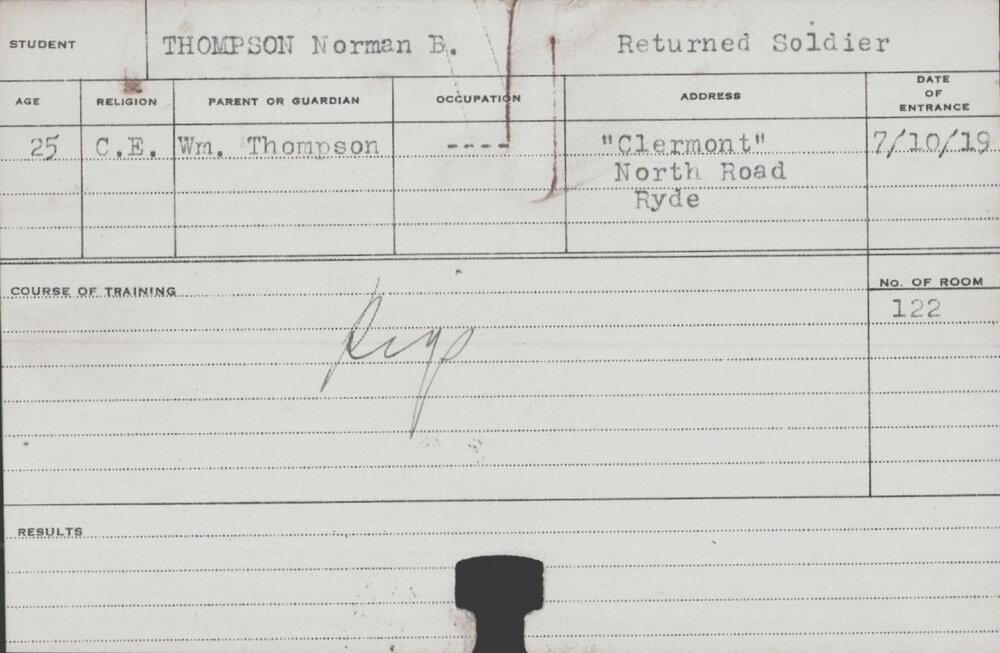 STUDENT THOMPSON Norman B. Returned Soldier
AGE RELIGION PARENT OR GUARDIAN OCCUPATION ADDRESS DATE OF ENTRANCE
25 C.E. Wm. Thompson ---- "Clermont" 7/10/19
North Road
Ryde
COURSE OF TRAINING No. OF ROOM
122
Pigs
RESULTS